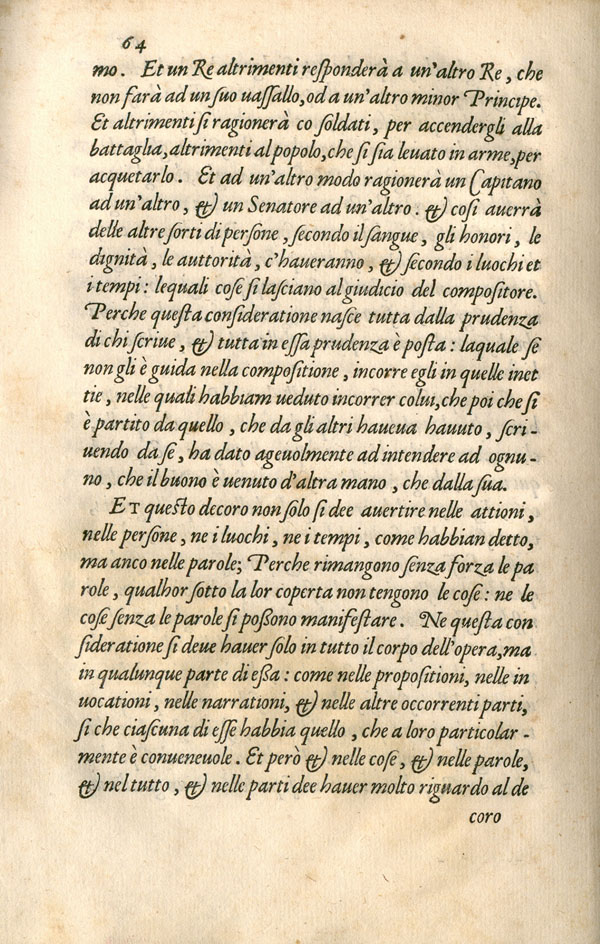 64
mo. Et un Re altrimenti responderà a un'altro Re, che
non farà ad un suo uassallo, od a un'altro minor Principe.
Et altrimenti si ragionerà co soldati, per accendergli alla
battaglia, altrimenti al popolo, che si sia leuato in arme, per
acquetarlo. Et ad un'altro modo ragionerà un Capitano
ad un'altro, & un Senatore ad un'altro. & cosi auerrà
delle altre sorti di persone, secondo il sangue, gli honori, le
dignità, le auttorità, c'haueranno, & secondo i luochi et
i tempi: lequali cose si lasciano al giudicio del compositore.
Perche questa consideratione nasce tutta dalla prudenza
di chi scriue, & tutta in essa prudenza è posta: laquale se
non gli è guida nella compositione, incorre egli in quelle inet
tie, nelle quali habbiam ueduto incorrer colui, che poi che si
è partito da quello, che da gli altri haueua hauuto, scri-
uendo da se, ha dato ageuolmente ad intendere ad ognu-
no, che il buono è uenuto d'altra mano, che dalla sua.
ET questo decoro non solo si dee auertire nelle attioni,
nelle persone, ne i luochi, ne i tempi, come habbian detto,
ma anco nelle parole; Perche rimangono senza forza le pa
role, qualhor sotto la lor coperta non tengono le cose: ne le
cose senza le parole si possono manifestare. Ne questa con
sideratione si deue hauer solo in tutto il corpo dell'opera, ma
in qualunque parte di essa: come nelle propositioni, nelle in
uocationi, nelle narrationi, & nelle altre occorrenti parti,
si che ciascuna di esse habbia quello, che a loro particolar-
mente è conueneuole. Et però & nelle cose, & nelle parole,
& nel tutto, & nelle parti dee hauer molto riguardo al de
coro